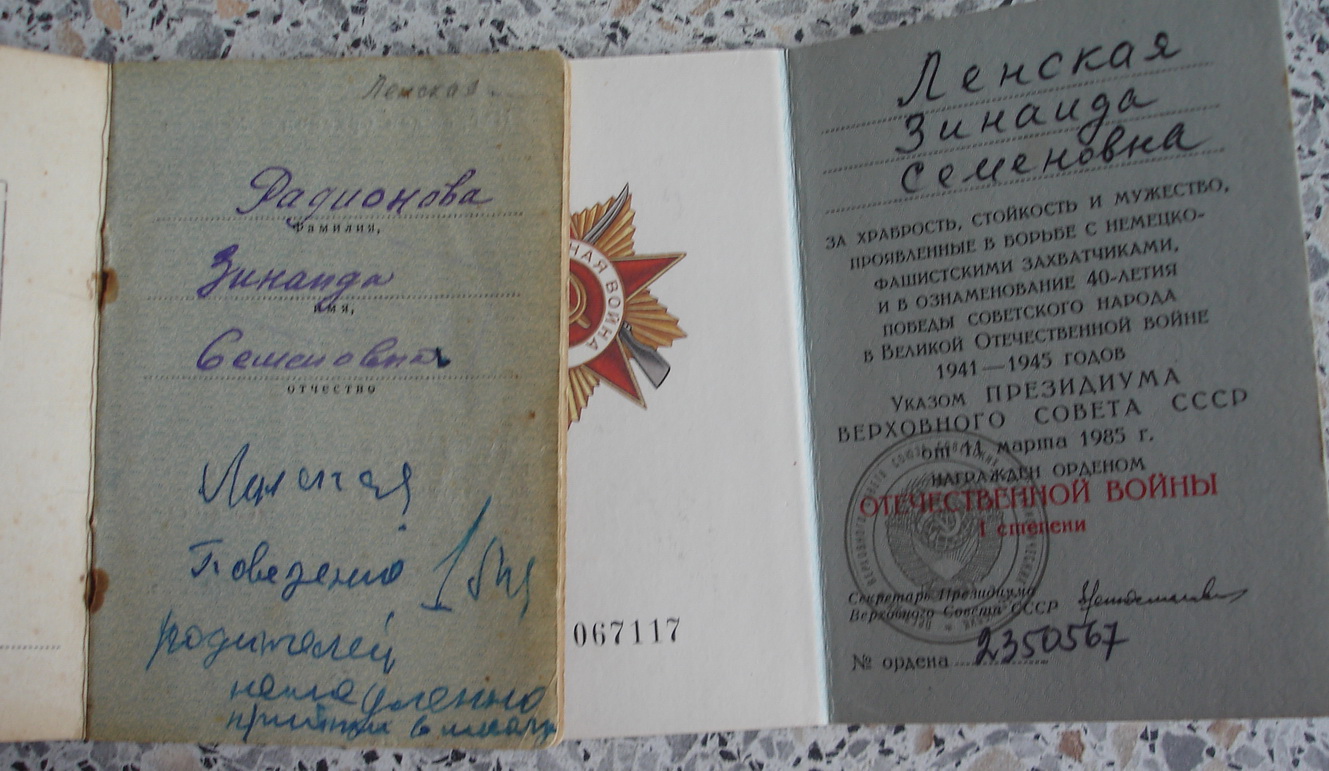 Ленская
Радионова
фамилия,
Зинаида
имя,
Семеновна
отчество
родителей
НАЯ ВОЙНА
067117
Ленская
Зинаида
Семеновна
ЗА ХРАБРОСТЬ, СТОЙКОСТЬ И МУЖЕСТВО,
ПРОЯВЛЕННЫЕ В БОРЬБЕ С НЕМЕЦКО-
ФАШИСТСКИМИ ЗАХВАТЧИКАМИ,
И В ОЗНАМЕНОВАНИЕ 40-ЛЕТИЯ
ПОБЕДЫ СОВЕТСКОГО НАРОДА
В ВЕЛИКОЙ ОТЕЧЕСТВЕННОЙ ВОЙНЕ
1941—1945 ГОДОВ
УКАЗОМ ПРЕЗИДИУМА
ВЕРХОВНОГО СОВЕТА СССР
от 11 марта 1985 г.
НАГРАЖДЕН ОРДЕНОМ
ОТЕЧЕСТВЕННОЙ ВОЙНЫ
I степени
Секретарь Президиума
Верховного Совета СССР
№ ордена 2350567